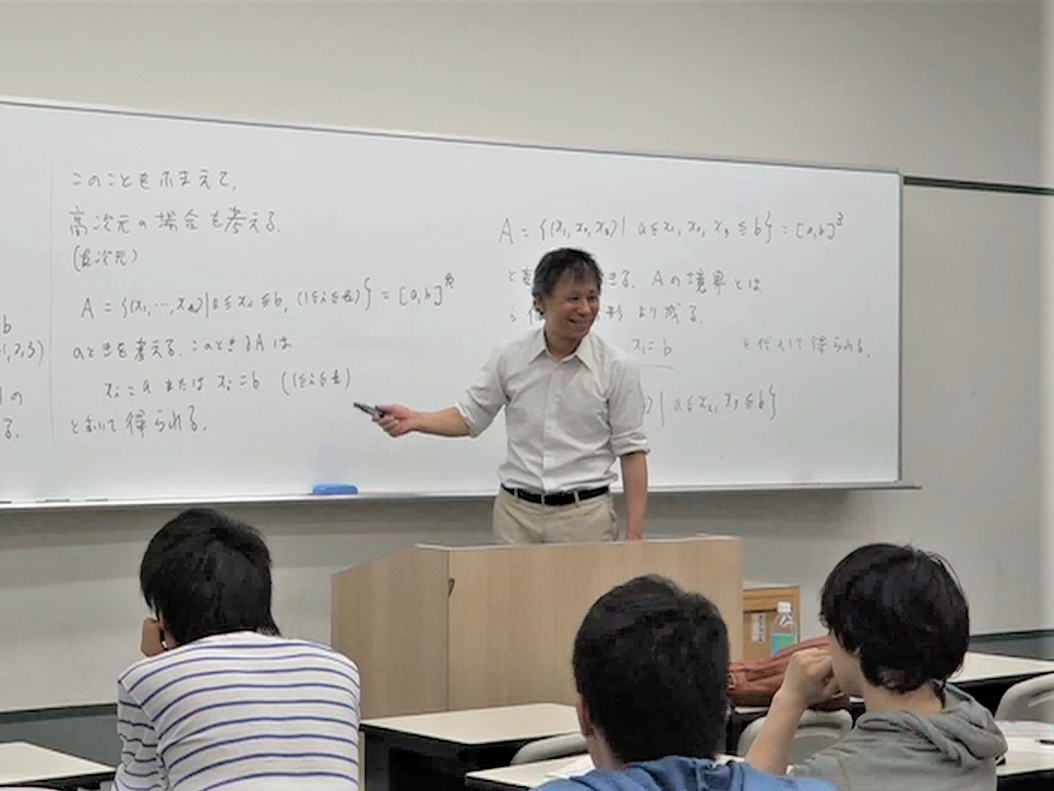 b
1, 2, 3)
の
る.
このことをふまえて,
高次元の場合も考える.
A = {(x₁, …, x
| a ≤ xᵢ ≤ b, (1≤i≤
)} = [a, b]
のときを考える. このとき
Aは
xᵢ = a または xᵢ = b (1≤i≤
)
とおいて得られる.
A = {(x₁, x₂, x₃) | a ≤ x₁, x₂, x₃ ≤ b} = [a, b]³
と
きる. Aの境界とは
6
形より成る.
x₁ = b
を代入して得られる.
) | a ≤ x₂, x₃ ≤ b}